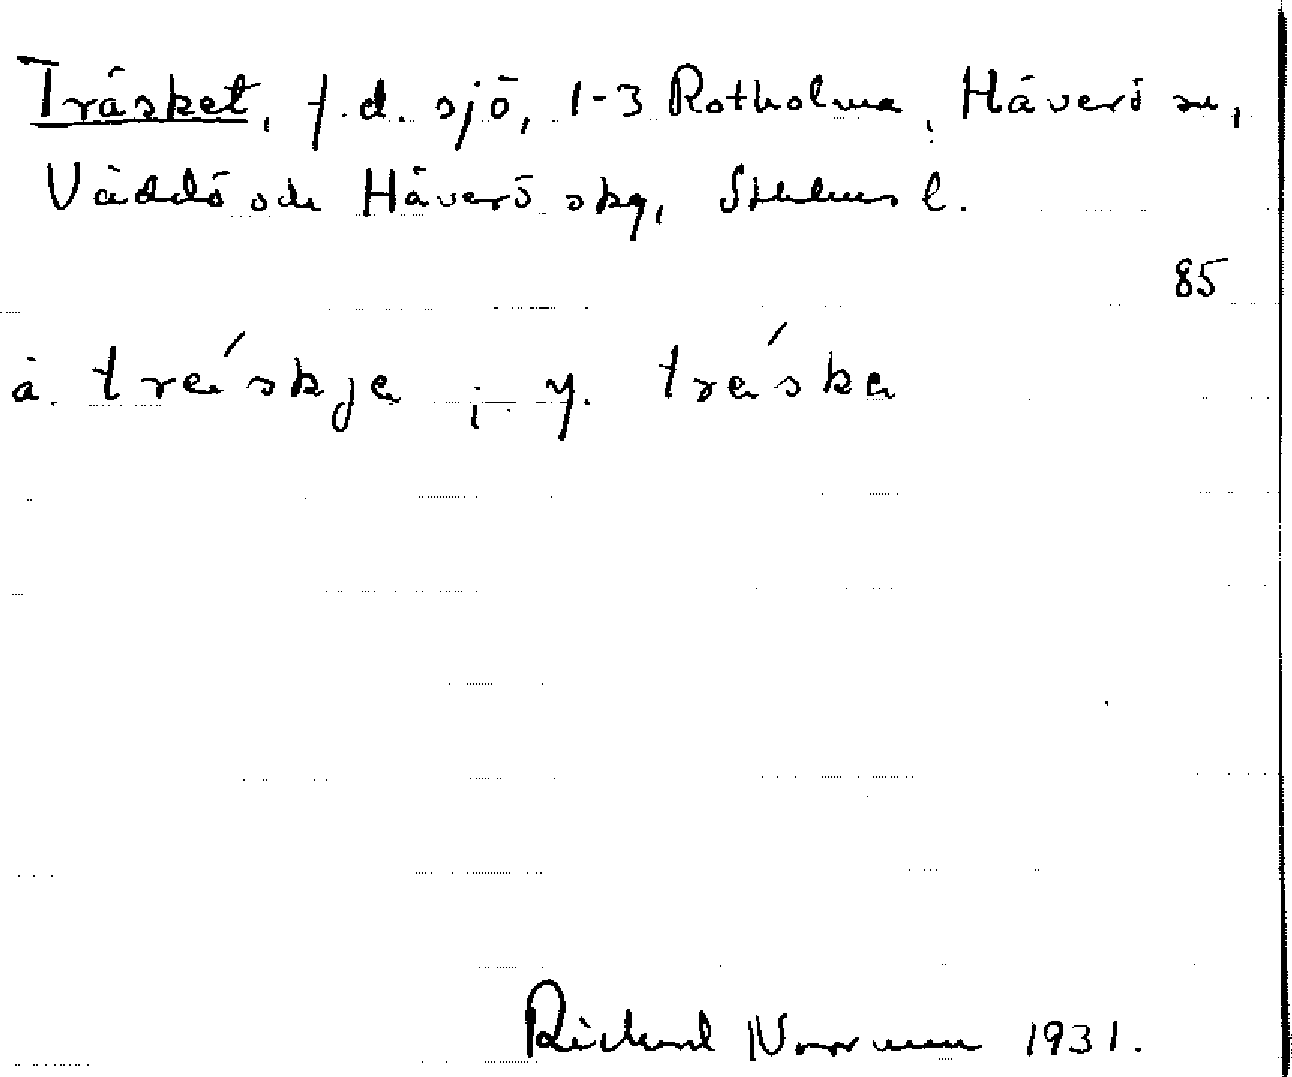 Träsket, f.d. sjö, 1-3 Rotholma, Häverö sn,
Väddö och Häverö skg, Sthlms l.
85
ä. trä´skjä ; y. trä´ska
Rickard Norrman 1931.